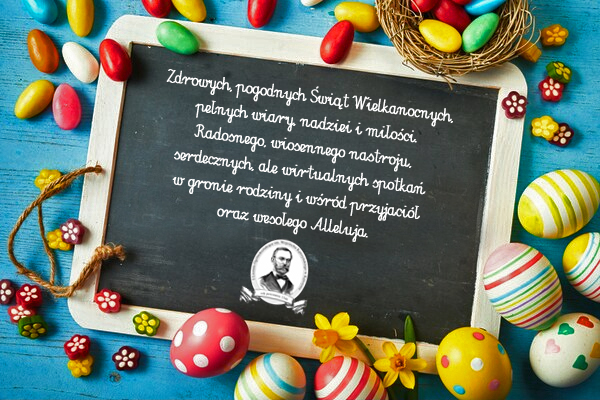 Zdrowych, pogodnych Świąt Wielkanocnych,
pełnych wiary, nadziei i miłości.
Radosnego, wiosennego nastroju,
serdecznych, ale wirtualnych spotkań
w gronie rodziny i wśród przyjaciół
oraz wesołego Alleluja.